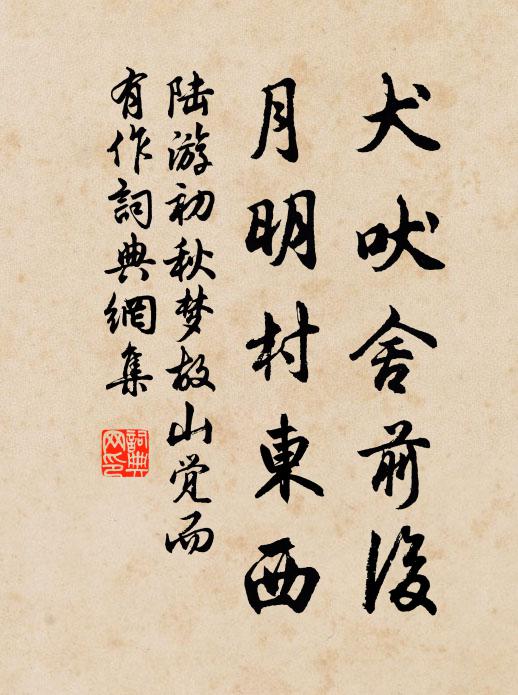 犬吠舍前後
月明村東西
陆游初秋梦故山觉而
有作詞典網集
詞典
网印